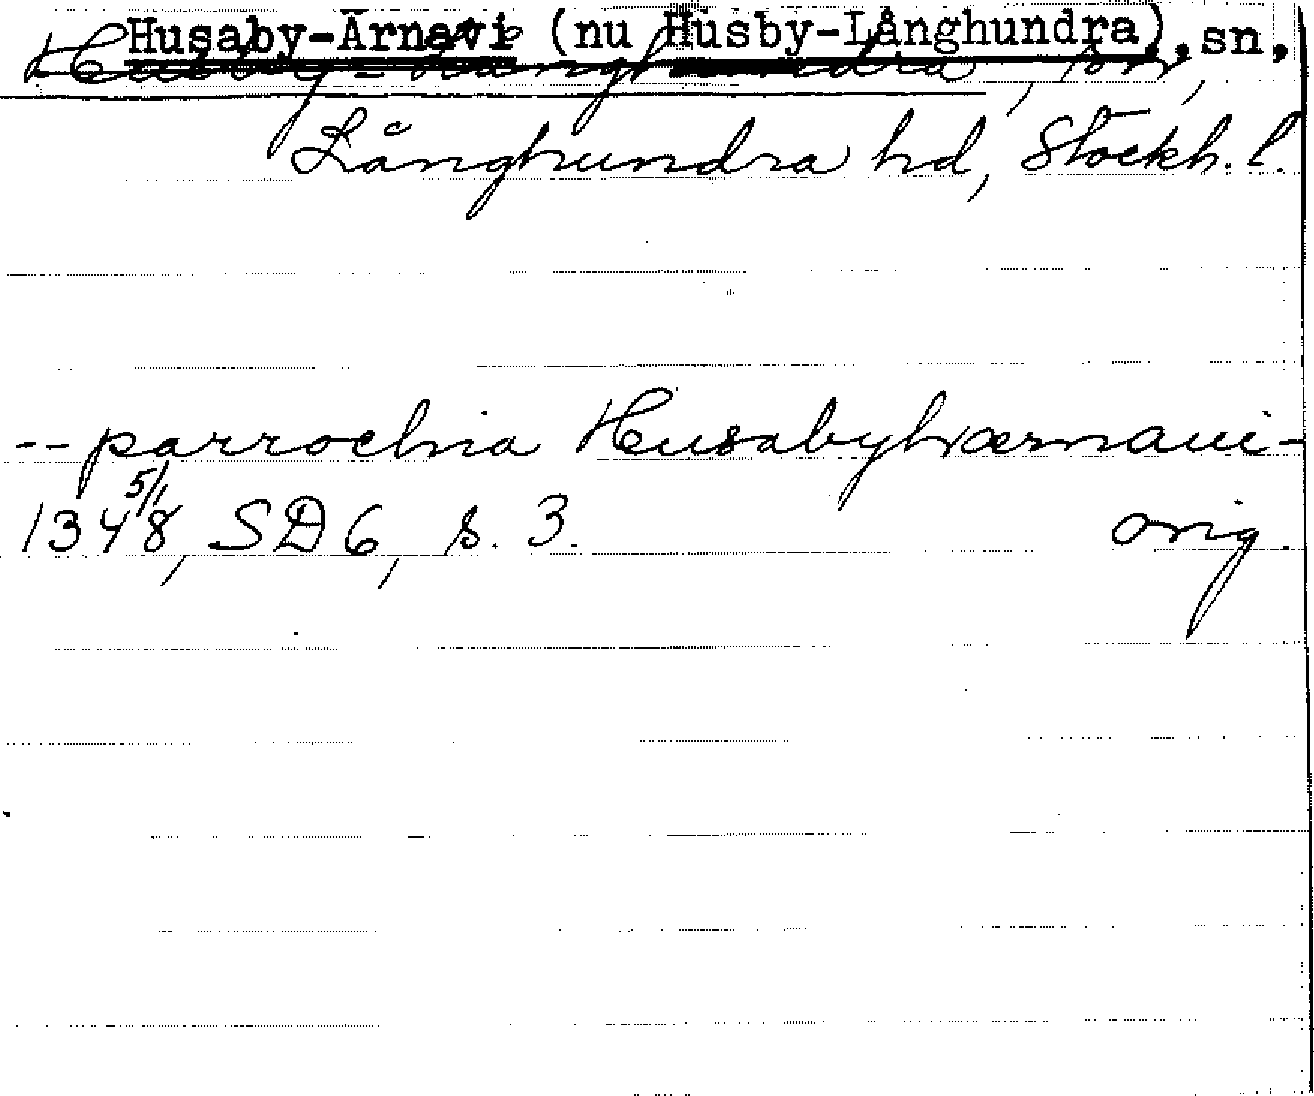 Husaby-Ärnavi (nu Husby-Långhundra), sn,
Husby-Långhundra, sn,
Långhundra hd, Stockh. l.
-- parrochia Husabyhærnaui -
1348 5/1, SD 6, s. 3. orig.